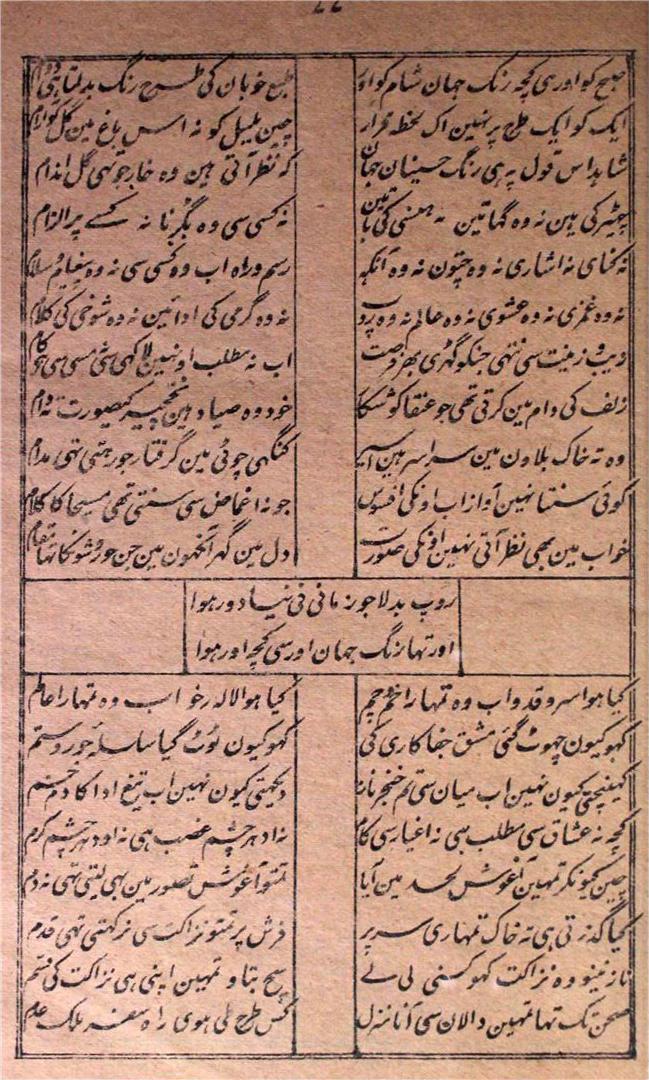 ۷۷
صبح کو اور ہی کچھ رنگ جہان شام کو اور طبع خوبان کی طرح رنگ بدلتا ہی
ایک کو ایک طرح پر نہین اک لحظہ قرار چین بلبل کو نہ اس باغ مین گل کو آرام
شاہد اس قول پہ ہی رنگ حسینان جہان کہ نظر آتی ہین وہ خار جو تہی گل اندام
چہیڑ کی ہین نہ وہ گہاتین نہ ہنسی کی باتین نہ کسی سی وہ بگڑنا نہ کسے پر الزام
نہ کنائی نہ اشاری نہ وہ چتون نہ وہ آنکہ رسم و راہ اب وہ کسی سی نہ وہ پیغام و سلام
نہ وہ غمزی نہ وہ عشوی نہ وہ عالم نہ وہ نہ وہ گرمی کی ادائین نہ وہ شوخی کی کلام
زیب و زینت سی نتہی جنکو گہڑی بہر فرصت اب نہ مطلب اونہین لاکہی سی مسی سی نہ کام
زلف کی دام مین کرتی تہی جو عنقا کو شکار خود وہ صیاد ہین نخچیر کیصورت تہ دام
وہ تہ خاک بلاون مین سراسر ہین اسیر کنگہی چوٹی مین گرفتار جو رہتی تہی مدام
کوئی سنتا نہین آواز اب اونکی افسوس جو نہ اغماض سی سنتی تہی مسیحا کا کلام
خواب مین بہی نظر آتی نہین اونکی صورت دل مین گہر آنکہون مین جن حور وشونکا تہا مقام
روپ بدلا جو زمانی نی نیا دور ہوا
اور تہا رنگ جہان اور سی کچہ اور ہوا
کیا ہوا سرو قدو اب وہ تمہارا خم و چم کیا ہوا لالہ رخو اب وہ تمہارا عالم
کہو کیون چہوٹ گئی مشق جفا کاری کی کہو کیون ٹوٹ گیا سلسلہ جور و ستم
کہینچتی کیون نہین اب میان سی تم خنجر ناز دیکہتی کیون نہین اب تیغ ادا کا دم خم
کچہ نہ عشاق سی مطلب ہی نہ اغیار سی کام نہ ادہر چشم غضب ہی نہ اودہر چشم کرم
چین کیونکر تمہین آغوش لحد مین آیا تمتو آغوش تصور مین بہی لیتی تہی نہ دم
کیا گذرتی ہی تہ خاک تمہاری سر پر فرش پر تمتو نزاکت سی نرکہتی تہی قدم
نازنینو وہ نزاکت کہو کسنی لی لے سچ بتاو تمہین اپنی ہی نزاکت کی قسم
صحن تک تہا تمہین دالان سی آنا منزل کس طرح طی ہوی راہ سفر ملک عدم